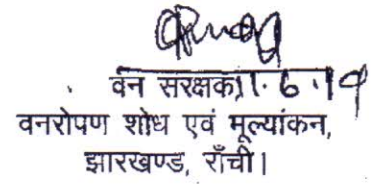 वन सरंक्षक 11.6.19
वनरोपण शोध एवं मूल्यांकन,
झारखण्ड, राँची।